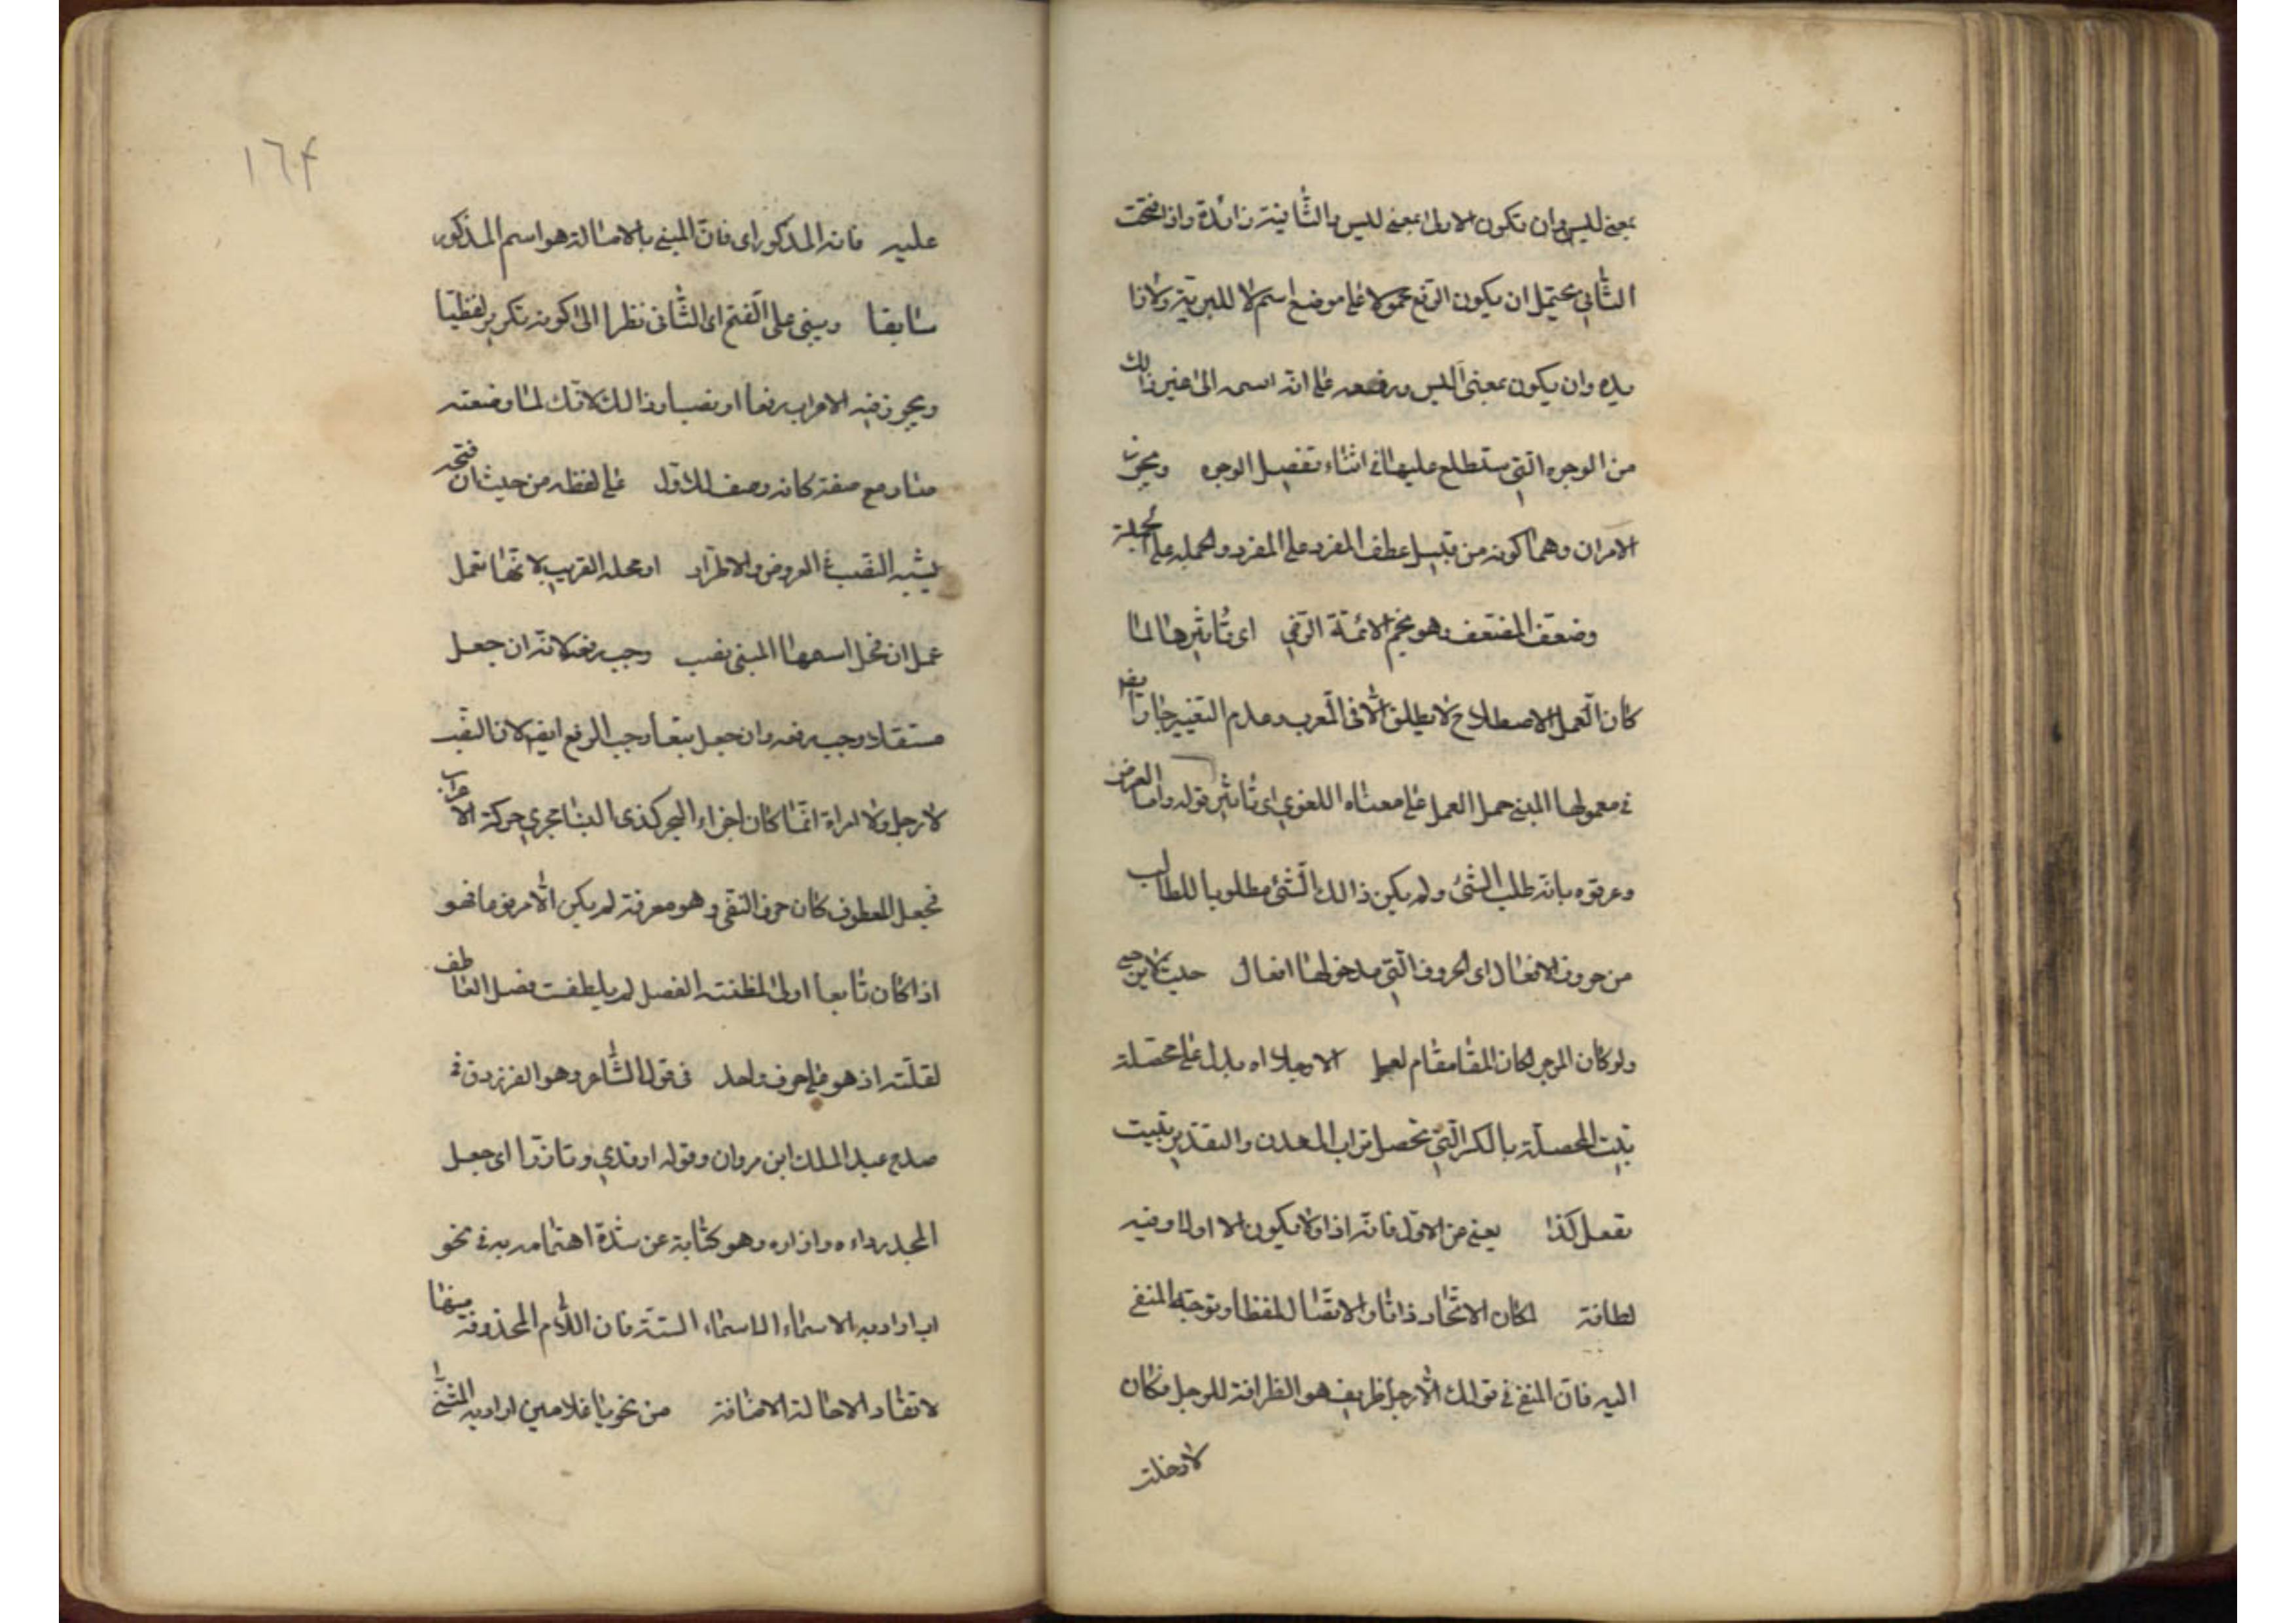 بمعنى ليس وان تكون الاولى بمعنى ليس والثانية زائدة واذا فتحت
الثاني يحتمل ان يكون الرفع محمولا على موضع اسم لا للتبرية ولازا
يده وان يكون بمعنى ليس ورفعه على انه اسمه الى غير ذالك
من الوجوه التي ستطلع عليها في اثناء تفصيل الوجوه ويجوز
الامران وهما كونه من قبيل عطف المفرد على المفرد والجملة على الجملة
وضعف المضعف وهو نجم الائمة الرضي اى تاثيرها لما
كان العمل الاصطلاح لا يطلق الا فى المعرب وعدم التغيير
في معمولها المبنى حمل العمل على معناه اللغوي اى تاثير قوله واما العرض
وعرفوه بانه طلب الشئ ولم يكن ذالك الشئ مطلوبا للطالب
من حروف الافعال اى الحروف التي مدخولها افعال حيث
ولو كان المرجل كان المقام مقام لعل الا رجلا اه يدل على محصلة
تبيت المحصلة بالكسر التي تحصل تراب المعدن والتقدير تبيت
تفعل كذا يعنى من الاول فانه اذا ولا يكون الا اولا وفيه
لطافة لمكان الاتحاد ذاتا والاتصال لفظا وتوجه المنفى
اليه فان المنفى في قولك لا رجل ظريف هو الظرافة للرجل فكان
لا دخلت
١٦٤
عليه فانه المذكور اى فان المبنى بالاصالة هو اسم المذكور
سابقا ويبنى على الفتح اى الثانى نظرا الى كونه تكرير لفظيا
ويجوز فيه الاعراب رفعا او نصبا وذالك لانك لما وضعته
صار مع صفته كانه وصف للاول على لفظه من حيث ان فتحه
يشبه النصب في العروض والاطراد او محله القريب لانها تعمل
عمل ان فمحل اسمها المبنى نصب وجب رفعه لانه ان جعل
مستقلا وجب رفعه وان جعل تبعا وجب الرفع ايض لان النصب
لا رجل ولا امراة انما كان اجراء البحر كذى البنا تجرى حركة الاعراب
فجعل المعطوف كان حرف النفى وهو معرفة لم يكن الا مرفوعا فهو
اذا كان تابعا اولى لمظنته الفصل لم يلطفت فصل العاطف
لقلته اذ هو على حرف واحد فى قول الشاعر وهو الفرزدق في
مدح عبد الملك ابن مروان وقوله ارتدى وتازرا اى جعل
المجد رداءه وازاره وهو كناية عن شدة اهتمامه به في نحو
اب اراد به الاسماء الستة فان اللام المحذوفة منها
لا تعاد الا حالة الاضافة من نحو يا غلامين اراد به المثنى